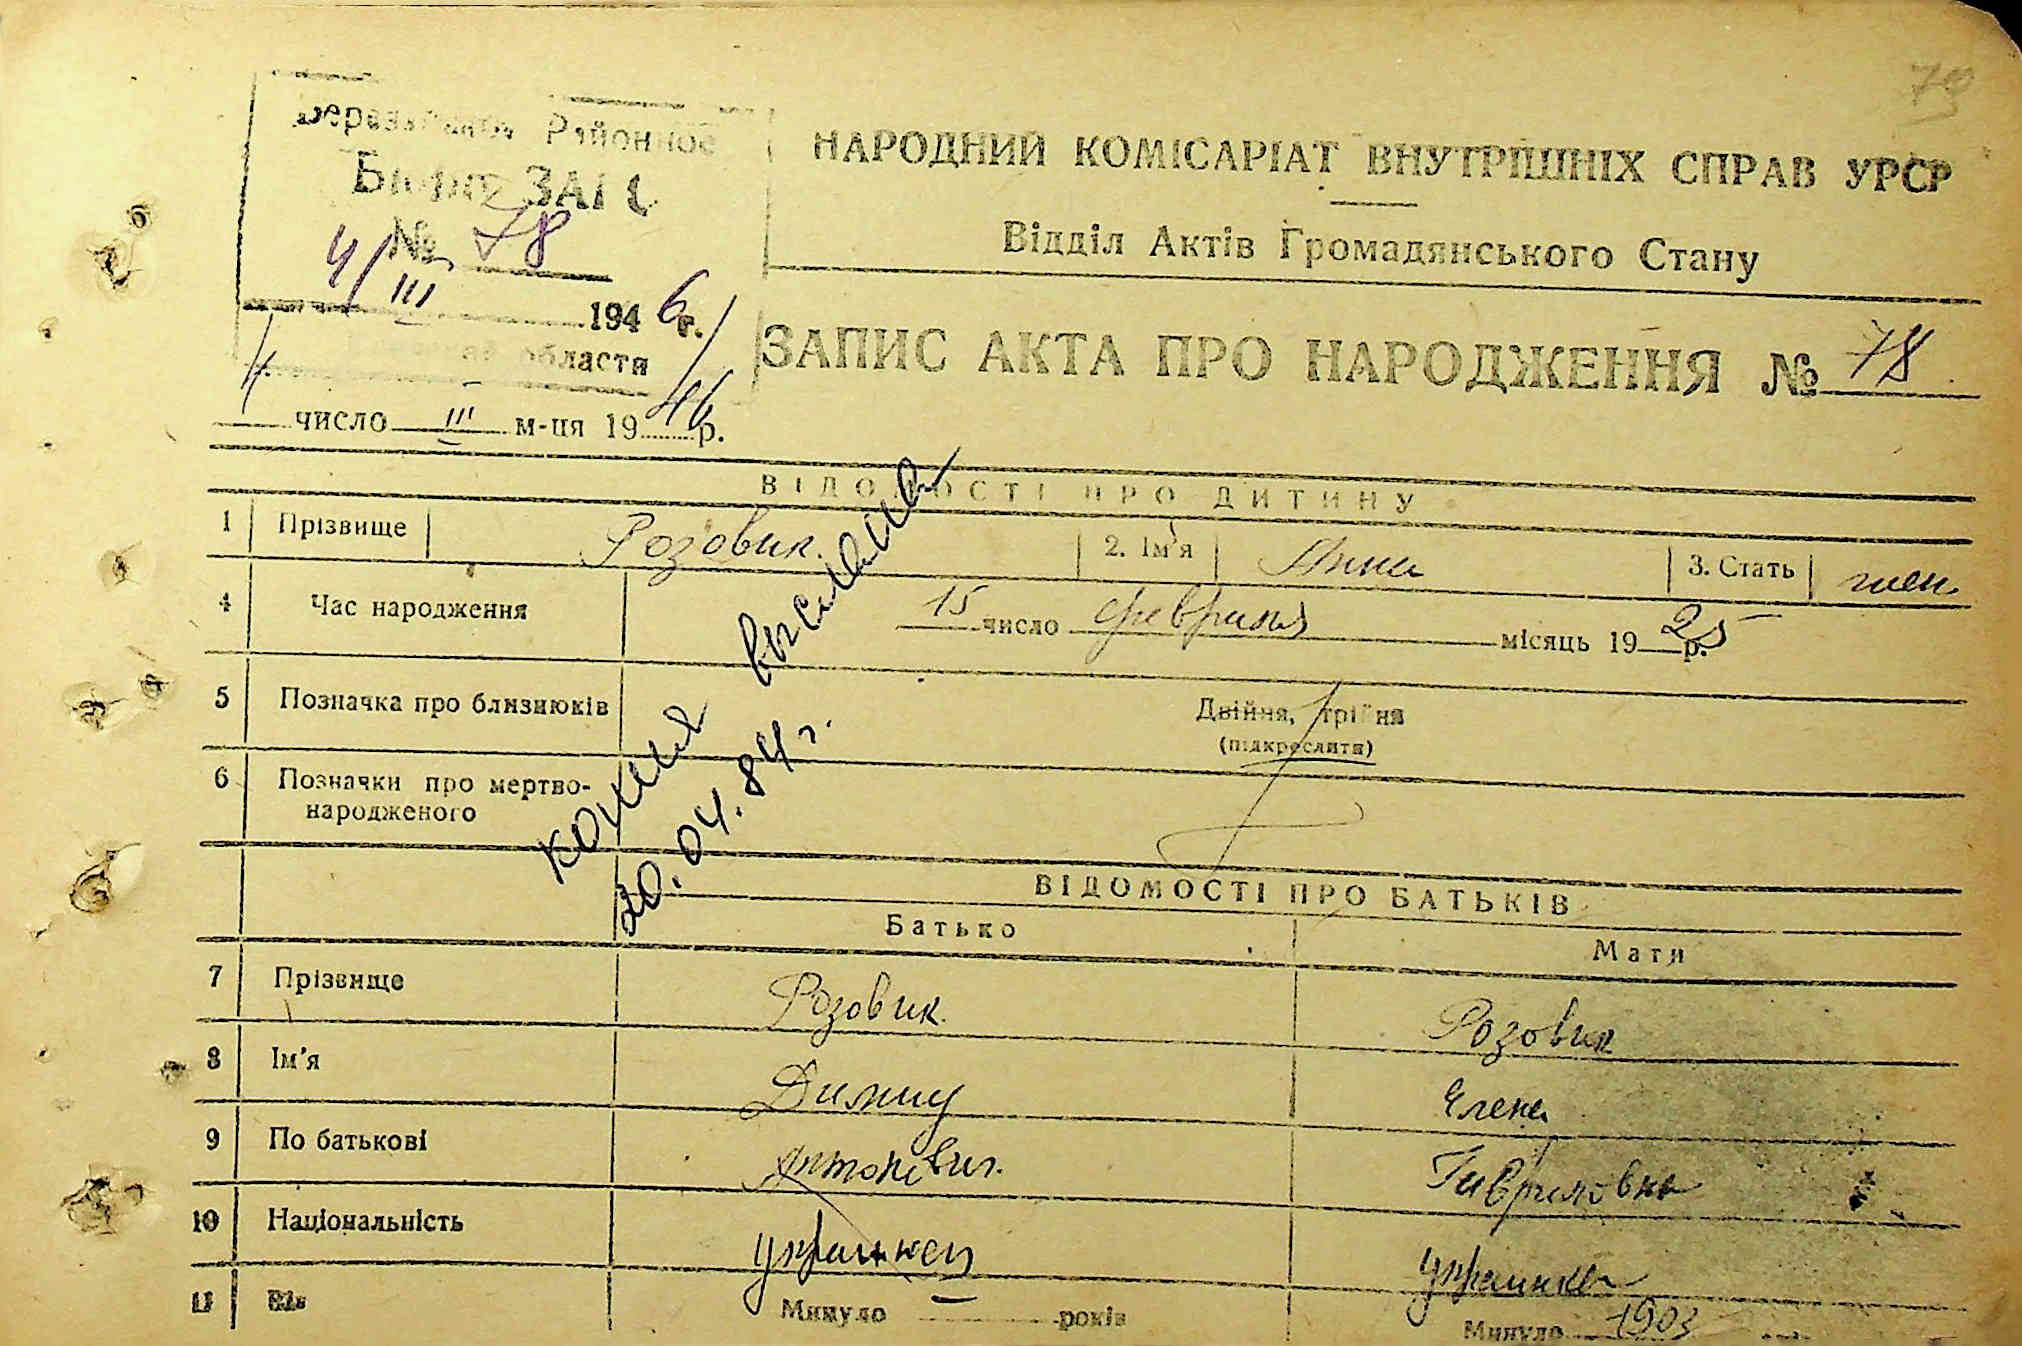 79
Районное
Бюро ЗАГС
№ 78
4/III 1946 г.
области
НАРОДНИЙ КОМІСАРІАТ ВНУТРІШНІХ СПРАВ УРСР
Відділ Актів Громадянського Стану
ЗАПИС АКТА ПРО НАРОДЖЕННЯ № 78
4 число III м-ця 1946 р.
ВІДОМОСТІ ПРО ДИТИНУ
1 Прізвище Розовик. 2. Ім'я Анна 3. Стать жен.
4 Час народження 15 число февраля місяць 1925 р.
5 Позначка про близнюків Двійня, трійня
(підкреслити)
6 Позначки про мертво-
народженого
копия выслана
20.04.84 г.
ВІДОМОСТІ ПРО БАТЬКІВ
Батько Мати
7 Прізвище Розовик. Розовик
8 Ім'я Елена
9 По батькові Антонович. Гавриловна
10 Національність украинец украинка
11 Вік Минуло — років Минуло 1903